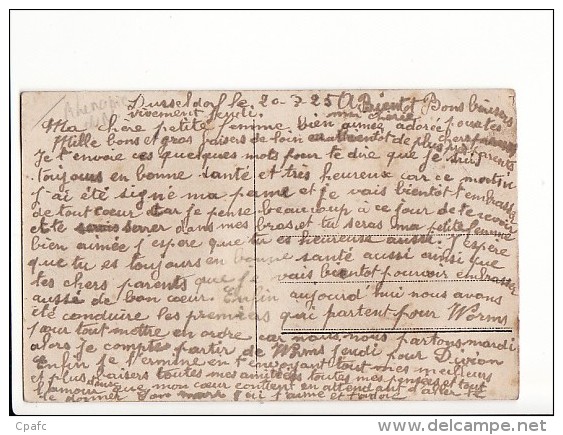 Dusseldorf le 20-7-25 A Bientot Bons baisers
vivement jeudi. mon cheri pour les
Ma chère petite femme bien aimée adorée
Mille bons et gros baisers de loin en attendant de plus près
Je t'envoie ces quelques mots pour te dire que je suis
toujours en bonne santé et très heureux car ce matin
j'ai été signé ma perme et je vais bientôt t'embrasser
de tout coeur car je pense beaucoup à ce jour de te revoir
et te serrer dans mes bras et tu seras ma petite femme
bien aimée j'espere que tu es heureuse aussi. J'espère
que tu es toujours en bonne santé aussi ainsi que
tes chers parents que je vais bientôt pouvoir embrasser
aussi de bon coeur. Enfin aujourd'hui nous avons
été conduire les premiers qui partent pour Worms
pour tout mettre en ordre car nous, nous partons mardi
alors je compte partir de Worms jeudi pour
Enfin je termine en t'envoyant tout mes meilleurs
et plus baisers toutes mes amitiés toutes mes pensées et tout
l'amour que mon coeur contient en attendant d'aller te
le donner Ton qui t'aime et t'adore
Cpafc
delcampe.net